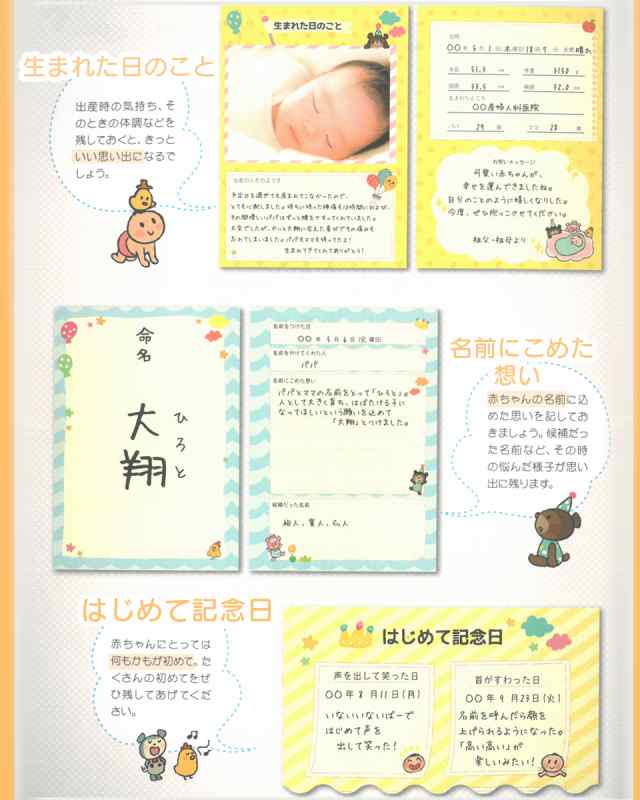 生まれた日のこと
出産時の気持ち、そ
のときの体調などを
残しておくと、きっと
いい思い出になるで
しょう。
生まれた日のこと
予定日を過ぎても産まれてこなかったので、
生まれてきてくれてありがとう!
〇〇産婦人科医院
パパ 29 歳 ママ 28 歳
お祝いメッセージ
可愛い赤ちゃんが、
幸せを運んできましたね。
自分のことのように嬉しくなりした。
今度、ぜひ抱っこさせてください。
祖父・祖母より
命名
大翔
ひろと
名前をつけた日
〇〇年 5 月 6 日(火曜日)
名前をつけてくれた人
パパ
名前にこめた想い
パパとママの名前をとって「ひろと」。
人として大きく育ち、はばたける子に
なってほしいという願いを込めて
「大翔」とつけました。
候補だった名前
名前にこめた
想い
赤ちゃんの名前に込
めた思いを記してお
きましょう。候補だっ
た名前など、その時
の悩んだ様子が思い
出に残ります。
はじめて記念日
赤ちゃんにとっては
何もかもが初めて。た
くさんの初めてをぜ
ひ残してあげてくだ
さい。
はじめて記念日
声を出して笑った日
〇〇年 8 月 11 日(月)
いないいないばーで
はじめて声を
出して笑った!
首がすわった日
〇〇年 9 月 23 日(火)
名前を呼んだら顔を
上げられるようになった。
「高い高い」が
楽しいみたい!